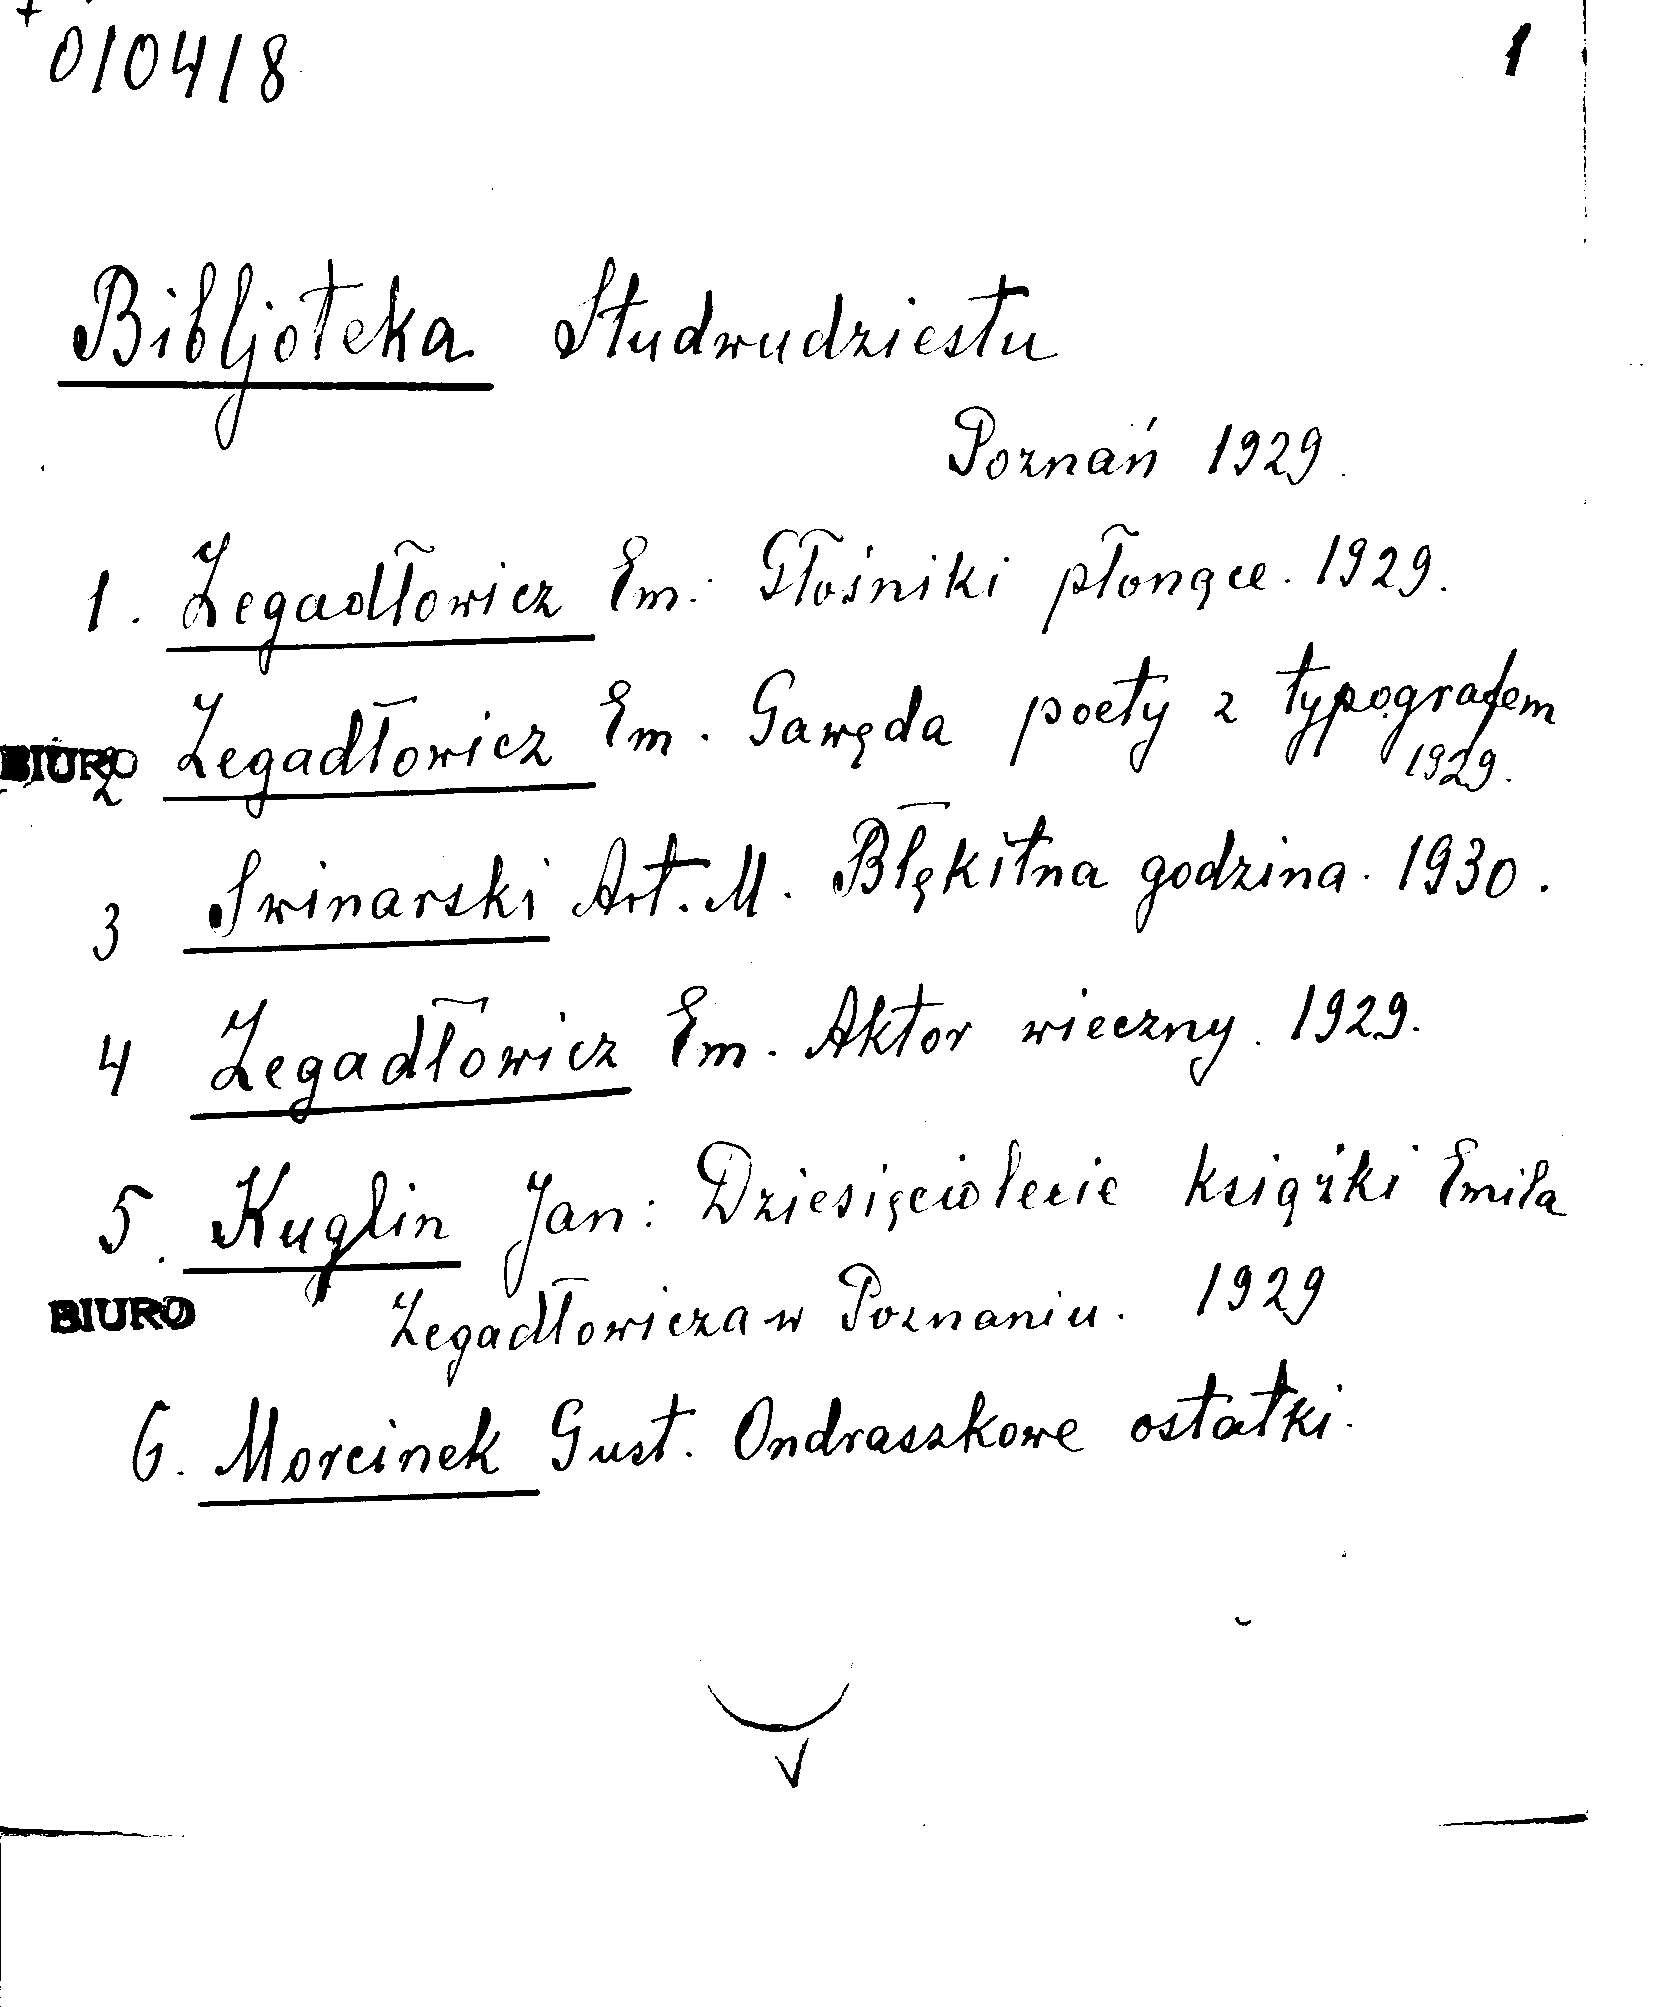 010418 1
Bibljoteka Studwudziestu
Poznań 1929.
1. Zegadłowicz Em. Głośniki płonące. 1929.
BIURO 2 Zegadłowicz Em. Gawęda poety z typografem
1929.
3 Swinarski Art. M. Błękitna godzina. 1930.
4 Zegadłowicz Em. Aktor wieczny. 1929.
5. Kuglin Jan: Dziesięciolecie książki Emila
BIURO Zegadłowicza w Poznaniu. 1929
6. Morcinek Gust. Ondraszkowe ostatki.